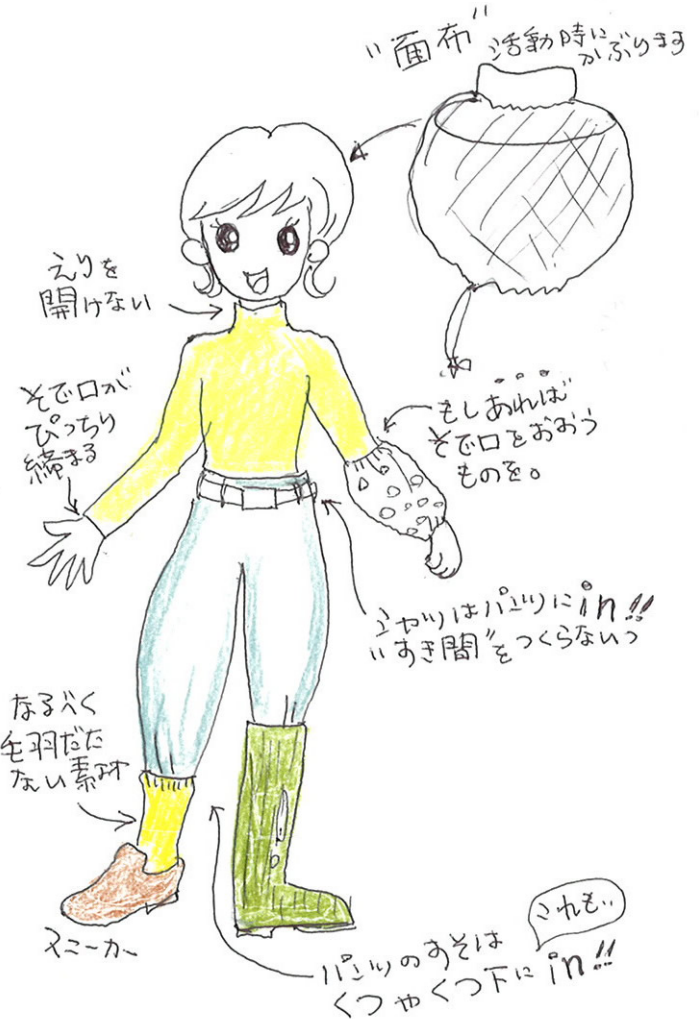 "面布"
活動時に
かぶります
えりを
開けない
そで口が
ぴっちり
締まる
もしあれば
そで口をおおう
ものを。
シャツはパンツにin!!
"すき間"をつくらないっ
なるべく
毛羽だた
ない素材
スニーカー
これも..
パンツのすそは
くつやくつ下にin!!